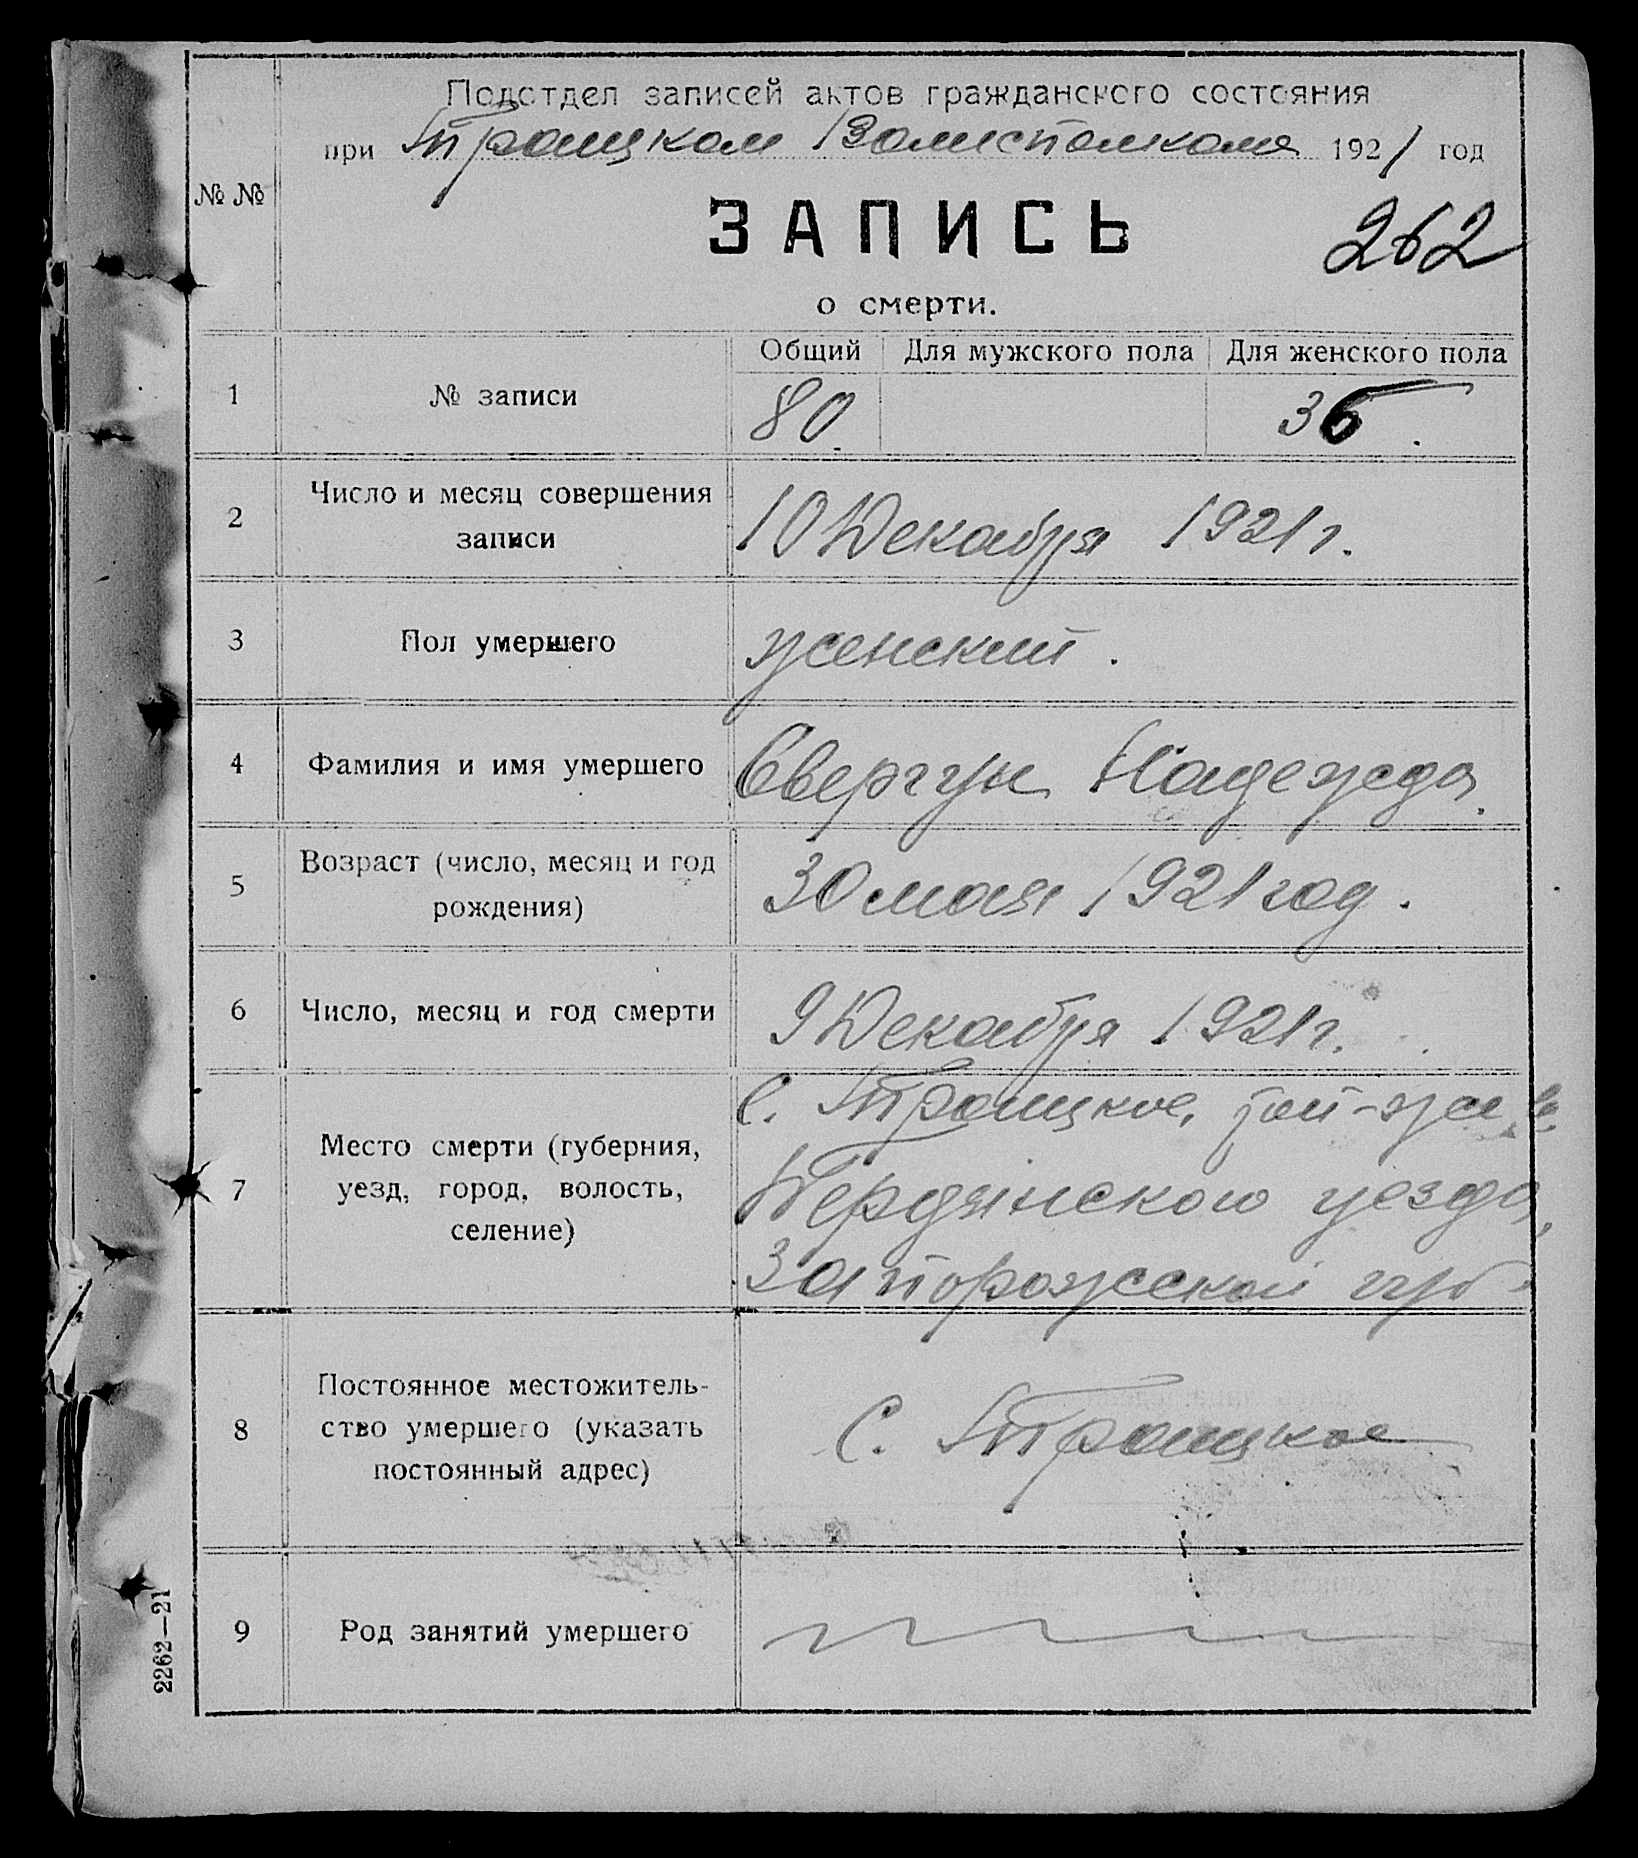 Подотдел записей актов гражданского состояния
при Троицком Волисполкоме 1921 год
№ №
ЗАПИСЬ
262
о смерти.
Общий Для мужского пола Для женского пола
1 № записи 80. 36.
2 Число и месяц совершения
записи
10 Декабря 1921 г.
3 Пол умершего женский.
4 Фамилия и имя умершего Свергун Надежда.
5 Возраст (число, месяц и год
рождения)
30 мая 1921 год.
6 Число, месяц и год смерти 9 Декабря 1921 г.
7 Место смерти (губерния,
уезд, город, волость,
селение)
С. Троицкое,
Бердянского уезда,
Запорожской губ
8 Постоянное местожитель-
ство умершего (указать
постоянный адрес)
С. Троицкое
9 Род занятий умершего
2262—21